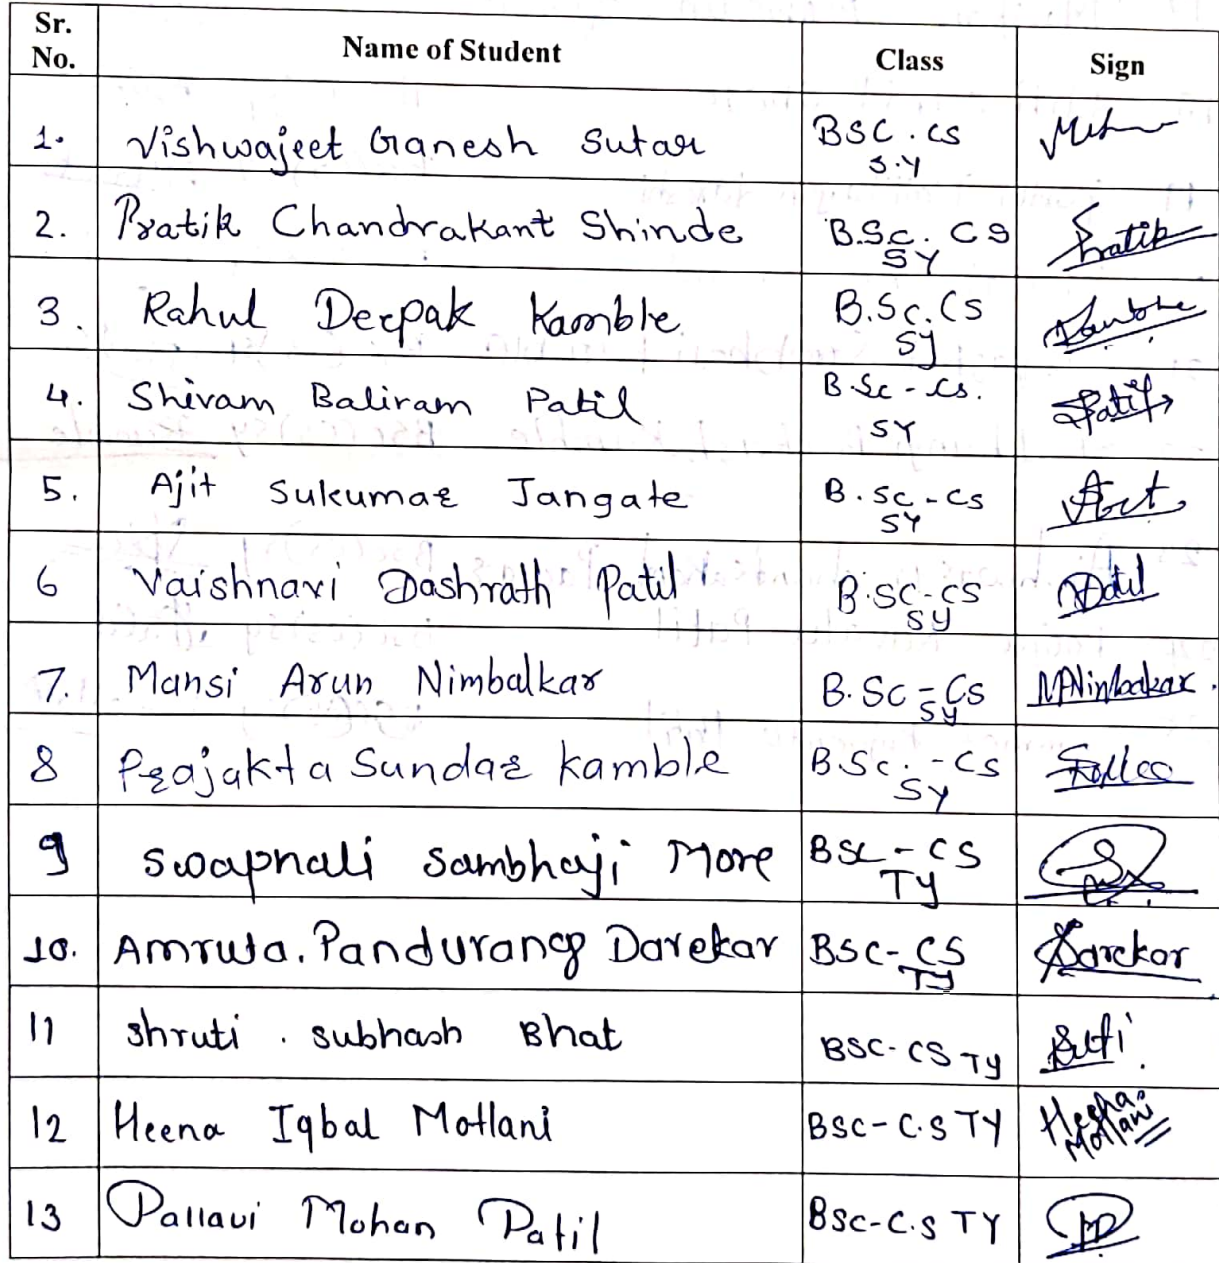 Sr. No. Name of Student Class Sign
1. Vishwajeet Ganesh Sutar BSC.CS S.Y
2. Pratik Chandrakant Shinde B.Sc. CS SY Pratik
3. Rahul Deepak Kamble. B.Sc.CS SY Kamble
4. Shivam Baliram Patil B.Sc-CS. SY Patil
5. Ajit Sukumar Jangate B.SC-CS SY
6 Vaishnavi Dashrath Patil B.SC-CS SY Patil
7. Mansi Arun Nimbalkar B.SC-CS SY MANimbalkar.
8 Prajakta Sundar Kamble B.Sc.-CS SY
9 Swapnali Sambhaji More BSC-CS TY
10. Amruta.Pandurang Darekar BSC-CS TY Darekar
11 Shruti. Subhash Bhat BSC-CS TY
12 Heena Iqbal Motlani BSC-C.S TY Heena Motlani
13 Pallavi Mohan Patil BSC-C.S TY